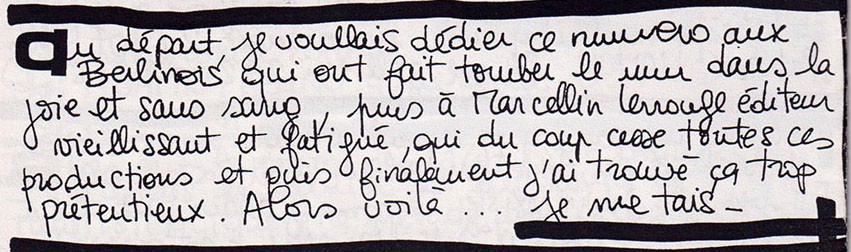 au départ, je voullais dédier ce numéro aux
Berlinois, qui ont fait tomber le mur dans la
joie et sans sang, puis à Marcellin Lerrouge éditeur
vieillissant et fatigué, qui du coup cesse toutes ces
productions et puis finalement j'ai trouvé ça trop
prétentieux. Alors voilà ... je me tais_